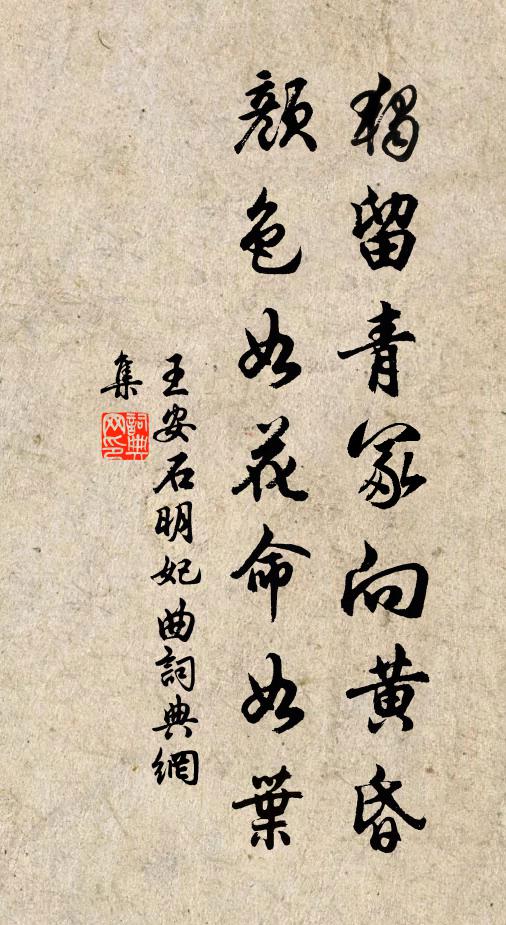 獨留青冢向黃昏
顏色如花命如葉
王安石明妃曲詞典網
集
詞典
网印